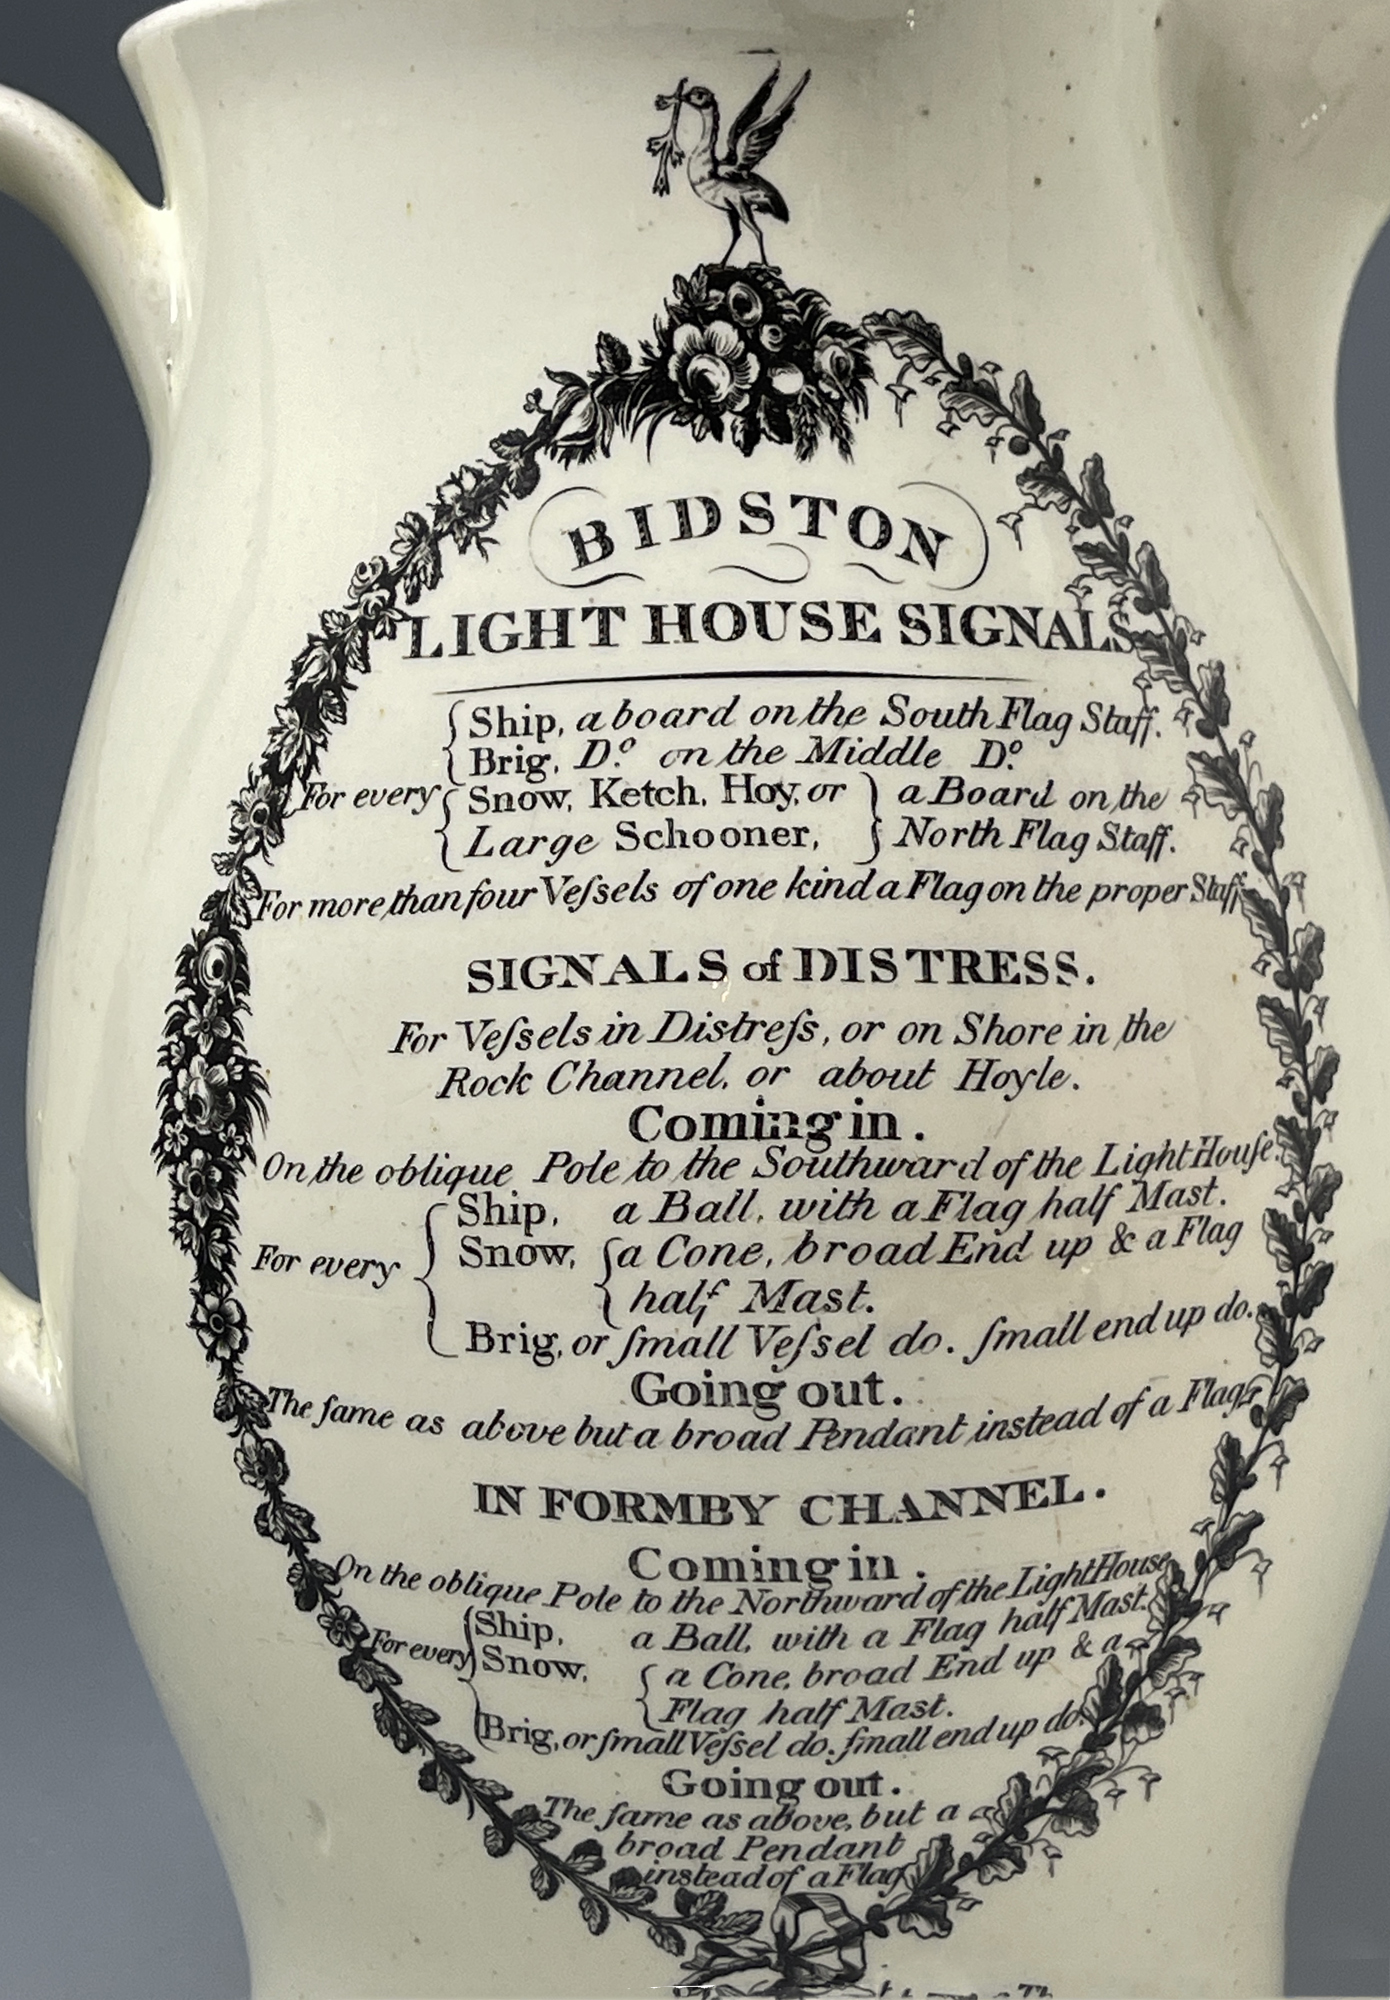 BIDSTON
LIGHT HOUSE SIGNALS
Ship, a board on the South Flag Staff.
Brig, Dº on the Middle Dº
For every Snow, Ketch, Hoy, or a Board on the
Large Schooner, North Flag Staff.
For more than four Veſsels of one kind a Flag on the proper Staff
SIGNALS of DISTRESS.
For Veſsels in Distreſs, or on Shore in the
Rock Channel, or about Hoyle.
Coming in.
On the oblique Pole to the Southward of the Light Houſe.
Ship, a Ball, with a Flag half Mast.
For every Snow, a Cone, broad End up & a Flag
half Mast.
Brig, or ſmall Veſsel do. ſmall end up do.
Going out.
The ſame as above but a broad Pendant instead of a Flag.
IN FORMBY CHANNEL.
Coming in.
On the oblique Pole to the Northward of the Light House
Ship, a Ball, with a Flag half Mast.
For every Snow, a Cone, broad End up & a
Flag half Mast.
Brig, or ſmall Veſsel do. ſmall end up do.
Going out.
The ſame as above, but a
broad Pendant
instead of a Flag